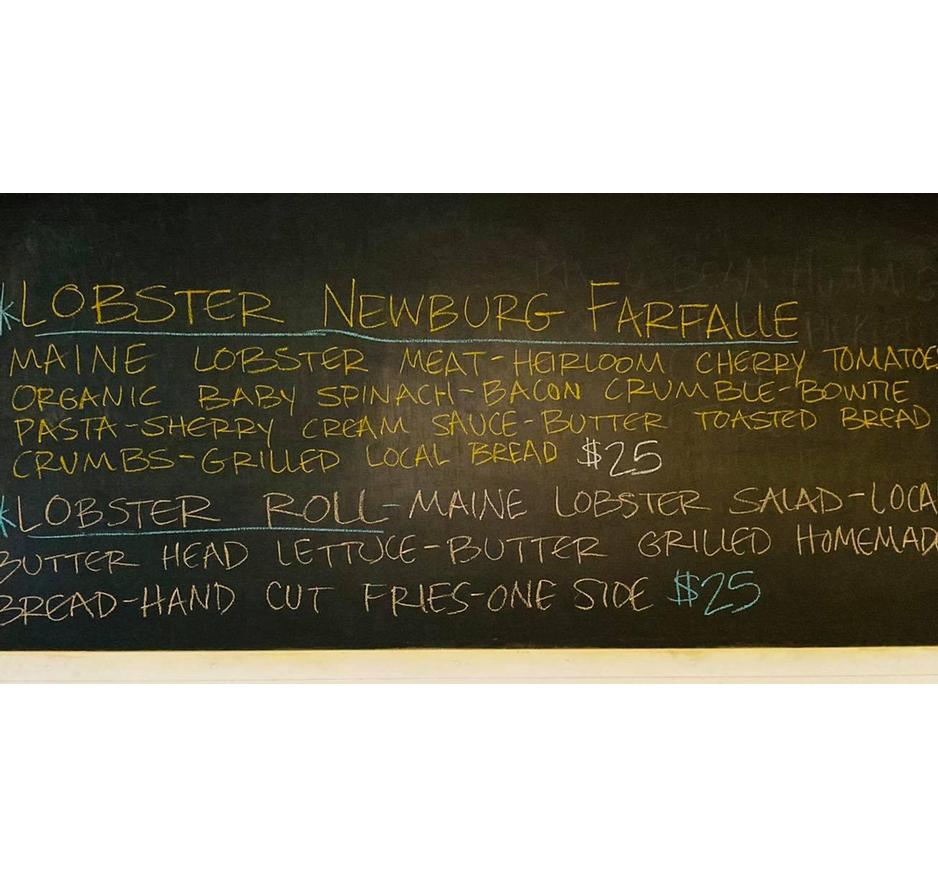 *LOBSTER NEWBURG FARFALLE
MAINE LOBSTER MEAT-HEIRLOOM CHERRY TOMATOES
ORGANIC BABY SPINACH-BACON CRUMBLE-BOWTIE
PASTA-SHERRY CREAM SAUCE-BUTTER TOASTED BREAD
CRUMBS-GRILLED LOCAL BREAD $25
*LOBSTER ROLL-MAINE LOBSTER SALAD-LOCA
BUTTER HEAD LETTUCE-BUTTER GRILLED HOMEMADE
BREAD-HAND CUT FRIES-ONE SIDE $25